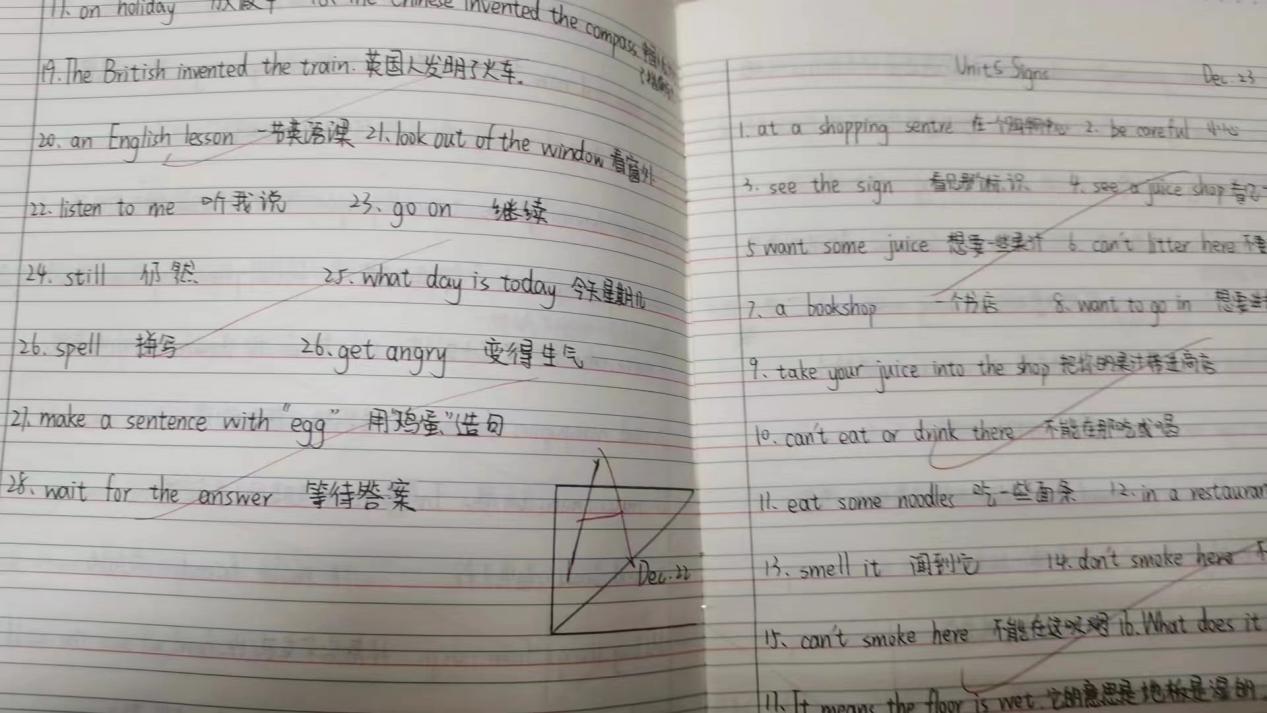 17. on holiday 放假中 18. the Chinese invented the compass
19. The British invented the train. 英国人发明了火车.
20. an English lesson 一节英语课 21. look out of the window 看窗外
22. listen to me 听我说 23. go on 继续
24. still 仍然 25. what day is today 今天星期几
26. spell 拼写 26. get angry 变得生气
27. make a sentence with "egg" 用"鸡蛋"造句
28. wait for the answer 等待答案
A
Dec. 22
Unit5 Signs Dec. 23
1. at a shopping sentre 在一个购物中心 2. be careful 小心
3. see the sign 看见那个标识 4. see a juice shop
5 want some juice 想要一些果汁 6. can't litter here
7. a bookshop 一个书店 8. want to go in 想要
9. take your juice into the shop 把你的果汁带进商店
10. can't eat or drink there 不能在那吃或喝
11. eat some noodles 吃一些面条 12. in a restauran
13. smell it 闻到它 14. don't smoke here
15. can't smoke here 不能在这吸烟 16. What does it
17. It means the floor is wet. 它的意思是地板是湿的